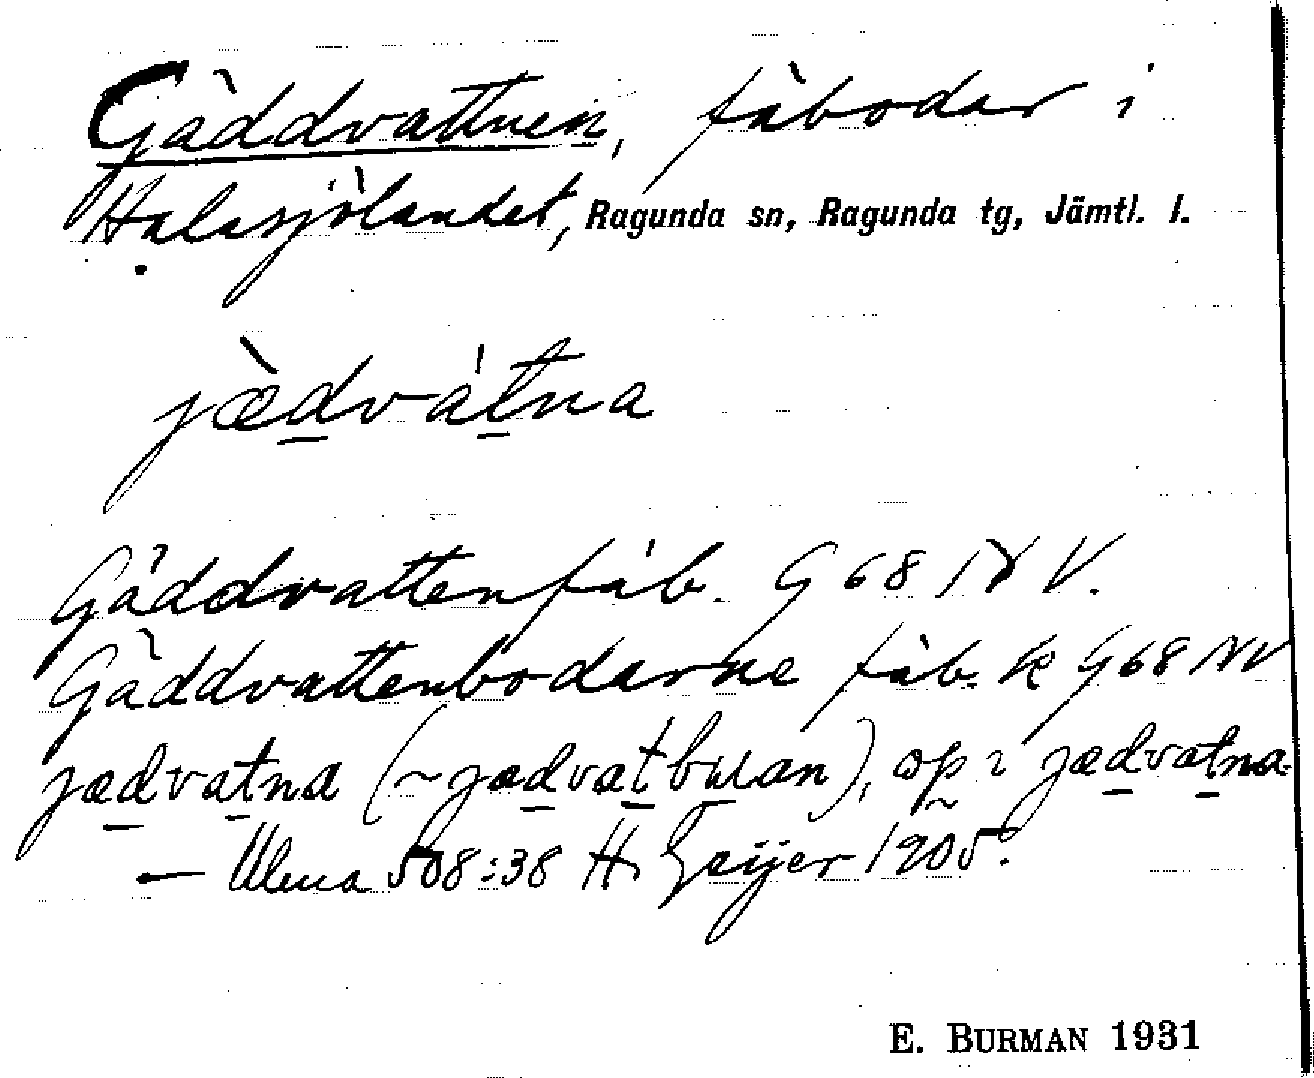 Gäddvattnen, fäbodar i
Halasjölandet, Ragunda sn, Ragunda tg, Jämtl. l.
jædvatna
Gäddvattenfäb. G 68 N V.
Gäddvattenbodarne fäb. k G 68 NV
jædvatna (~ jædvatbuan), op i jædvatna.
— Ulma 508:38 H. Geijer 1905.
E. BURMAN 1931